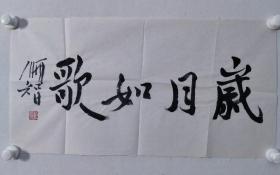 歲月如歌